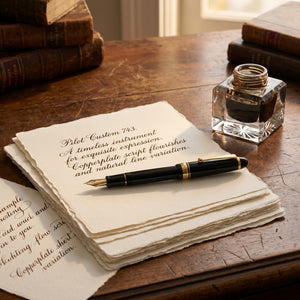 Pilot Custom 743.
A timeless instrument
for exquisite expression.
Copperplate script flourishes
and natural line variation.
ample
word wait and
to you
flow
Copperplate
variation